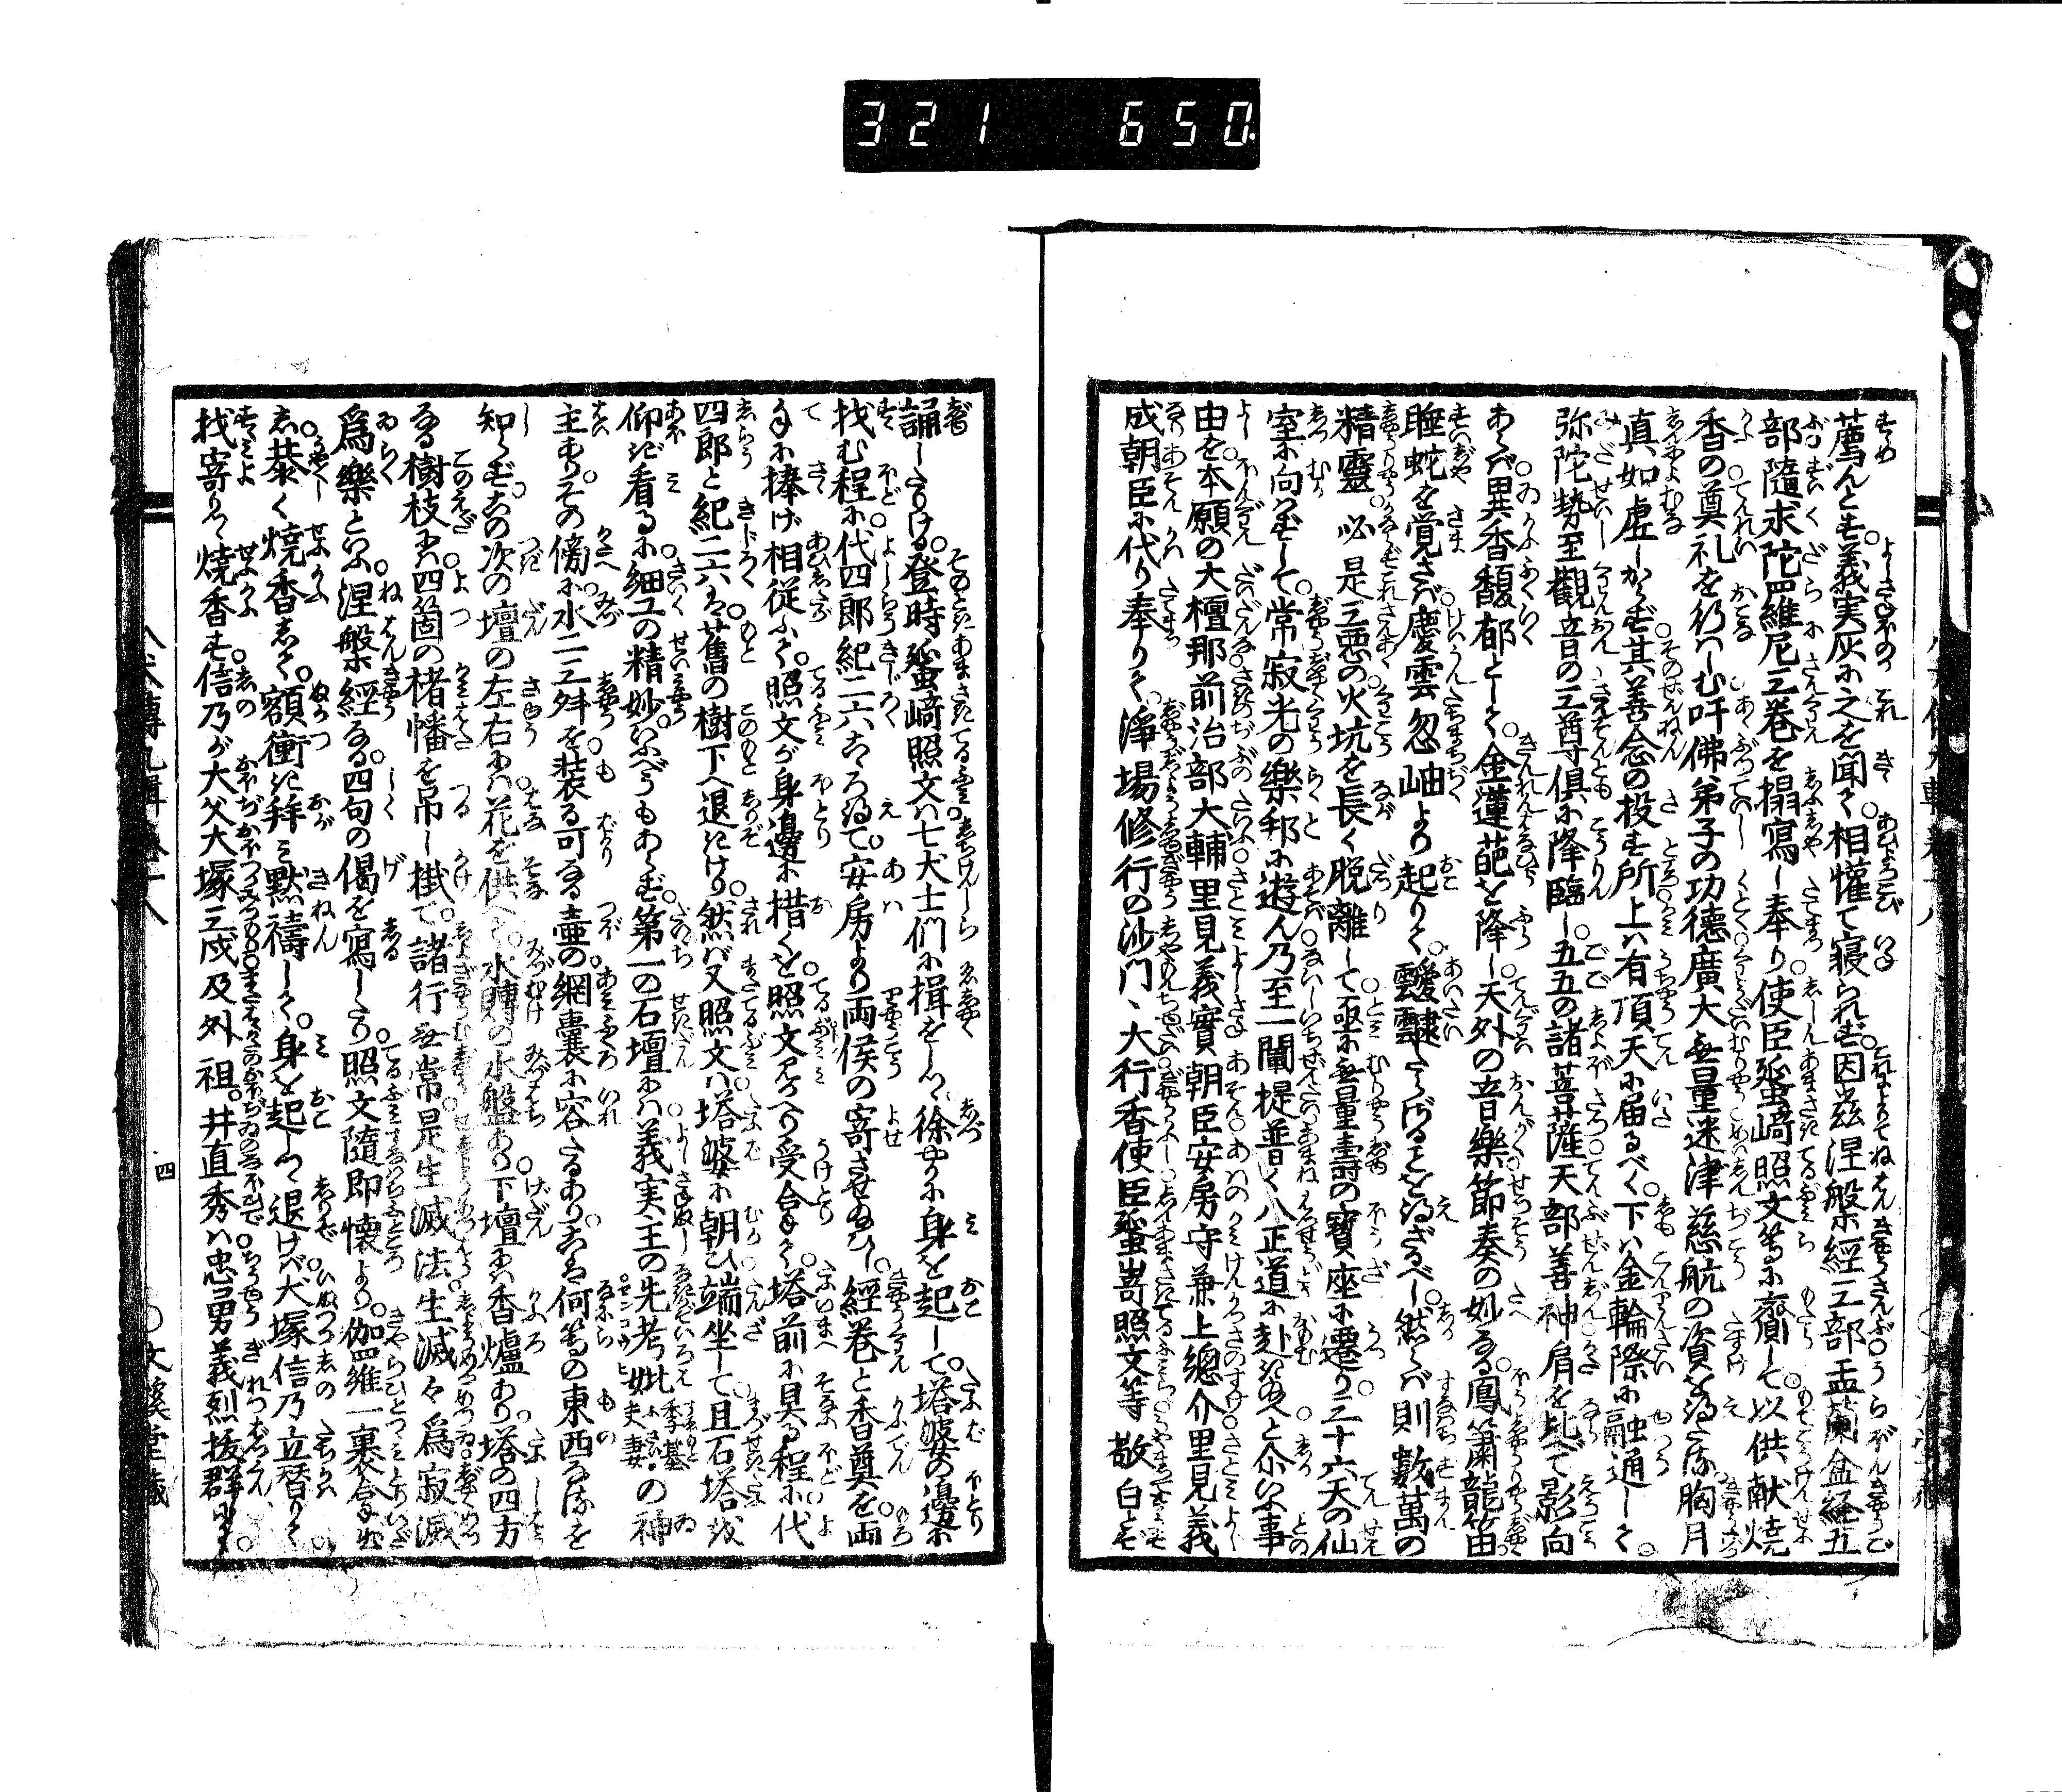 321 650
薦んとす。義実灰に之を聞く。相懽て寝られず。因茲涅槃經三部盂蘭盆經五
部隨求陀羅尼三巻を搨寫し奉り使臣蜑﨑照文等に齎して以供献焼
香の奠礼を行しむ吁佛弟子の功德廣大無量迷津慈航の資を得たる胸月
真如虚しからず其善念の投す所上は有頂天に届るべく下は金輪際に融通しく。
弥陀勢至觀音の三尊俱に降臨し五五の諸菩薩天部善神肩を比て影向
あらば異香馥郁として。金蓮葩を降し天外の音樂節奏の妙なる鳳簫龍笛
睡蛇を覚さば慶雲忽岫より起りく。靉靆たらざることを得ざるべし然らば則數萬の
精靈必是三悪の火坑を長く脱離して亟に無量壽の寶座に遷り三十六天の仙
室に向ずして。常寂光の樂邦に遊ん乃至一闡提普く八正道に赴きぬと尒いふ事の
由を。本願の大檀那前治部大輔里見義實朝臣安房守兼上總介里見義
成朝臣に代り奉りく。淨場修行の沙門、大行香使臣蜑嵜照文等敬白とぞ
誦したりける。登時蜑﨑照文は七犬士們に揖をしつ徐やかに身を起して。塔婆の邊に
找む程に。代四郎紀二六こゝろ得て。安房より両侯の寄させ給ひし。經巻と香奠を。両
手に捧げ相從ふく。照文が身邊に措くを。照文見かへり受合しく。塔前に具る程に代
四郎と紀二六は舊の樹下へ退きけり。然ば又照文は塔婆に朝ひ端坐して且石塔を
仰ぎ看るに。細工の精妙。いふべうもあらず。第一の石壇には義実主の先考妣季基夫妻の神
主あり。その傍に水二三升を装る可なる壷の網嚢に容たるあり。こは何等の東西なるを
知らず。この次の壇の左右には花を供へて。水賻の水盤あり。下壇には香爐あり。塔の四方
なる樹枝には。四箇の楮幡を吊し掛て。諸行無常是生滅法生滅々為寂滅
爲樂といふ涅槃經なる。四句の偈を寫したり。照文隨即懐より。伽羅一裹合を出
し。恭く焼香しく。額衝き拜み黙禱しく。身を起しつ退けば。犬塚信乃立替りく
找寄りて焼香す。信乃が大父大塚三戍及外祖。井直秀は忠勇義烈抜群にして。
八犬傳九輯巻十八
四
文溪堂藏